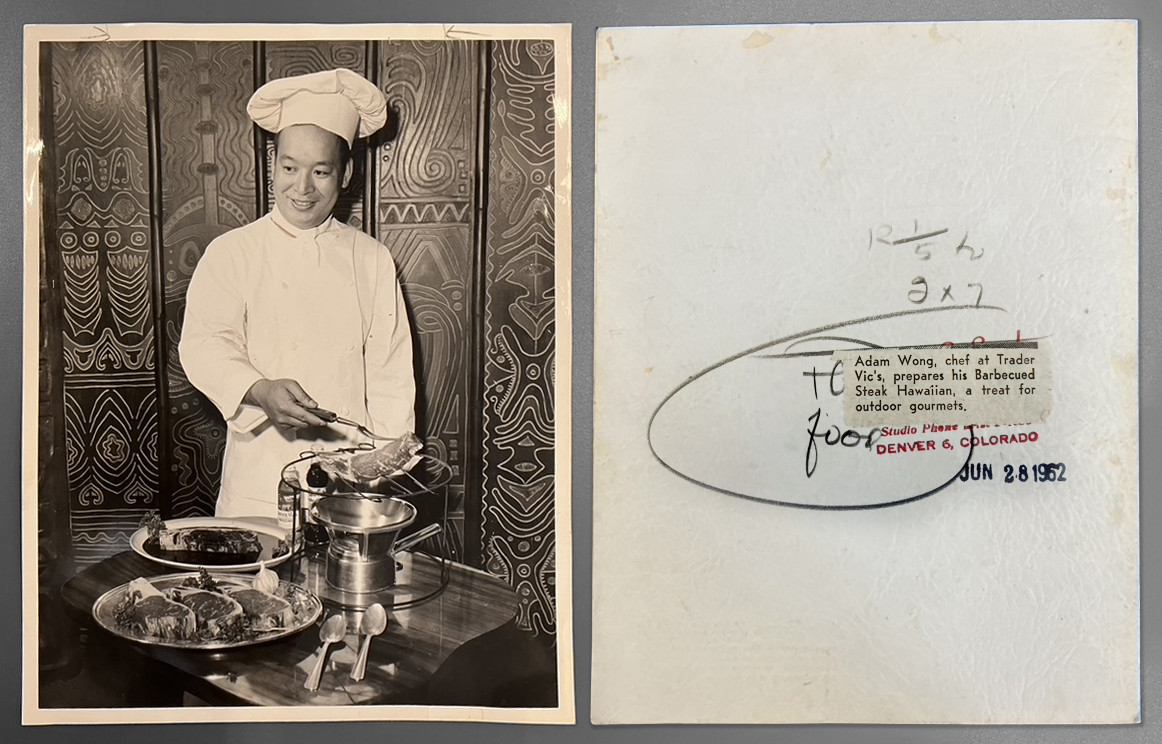 R 1/5 h
2 x 7
Adam Wong, chef at Trader
Vic's, prepares his Barbecued
Steak Hawaiian, a treat for
outdoor gourmets.
food
Studio Phone
DENVER 6, COLORADO
JUN 28 1962